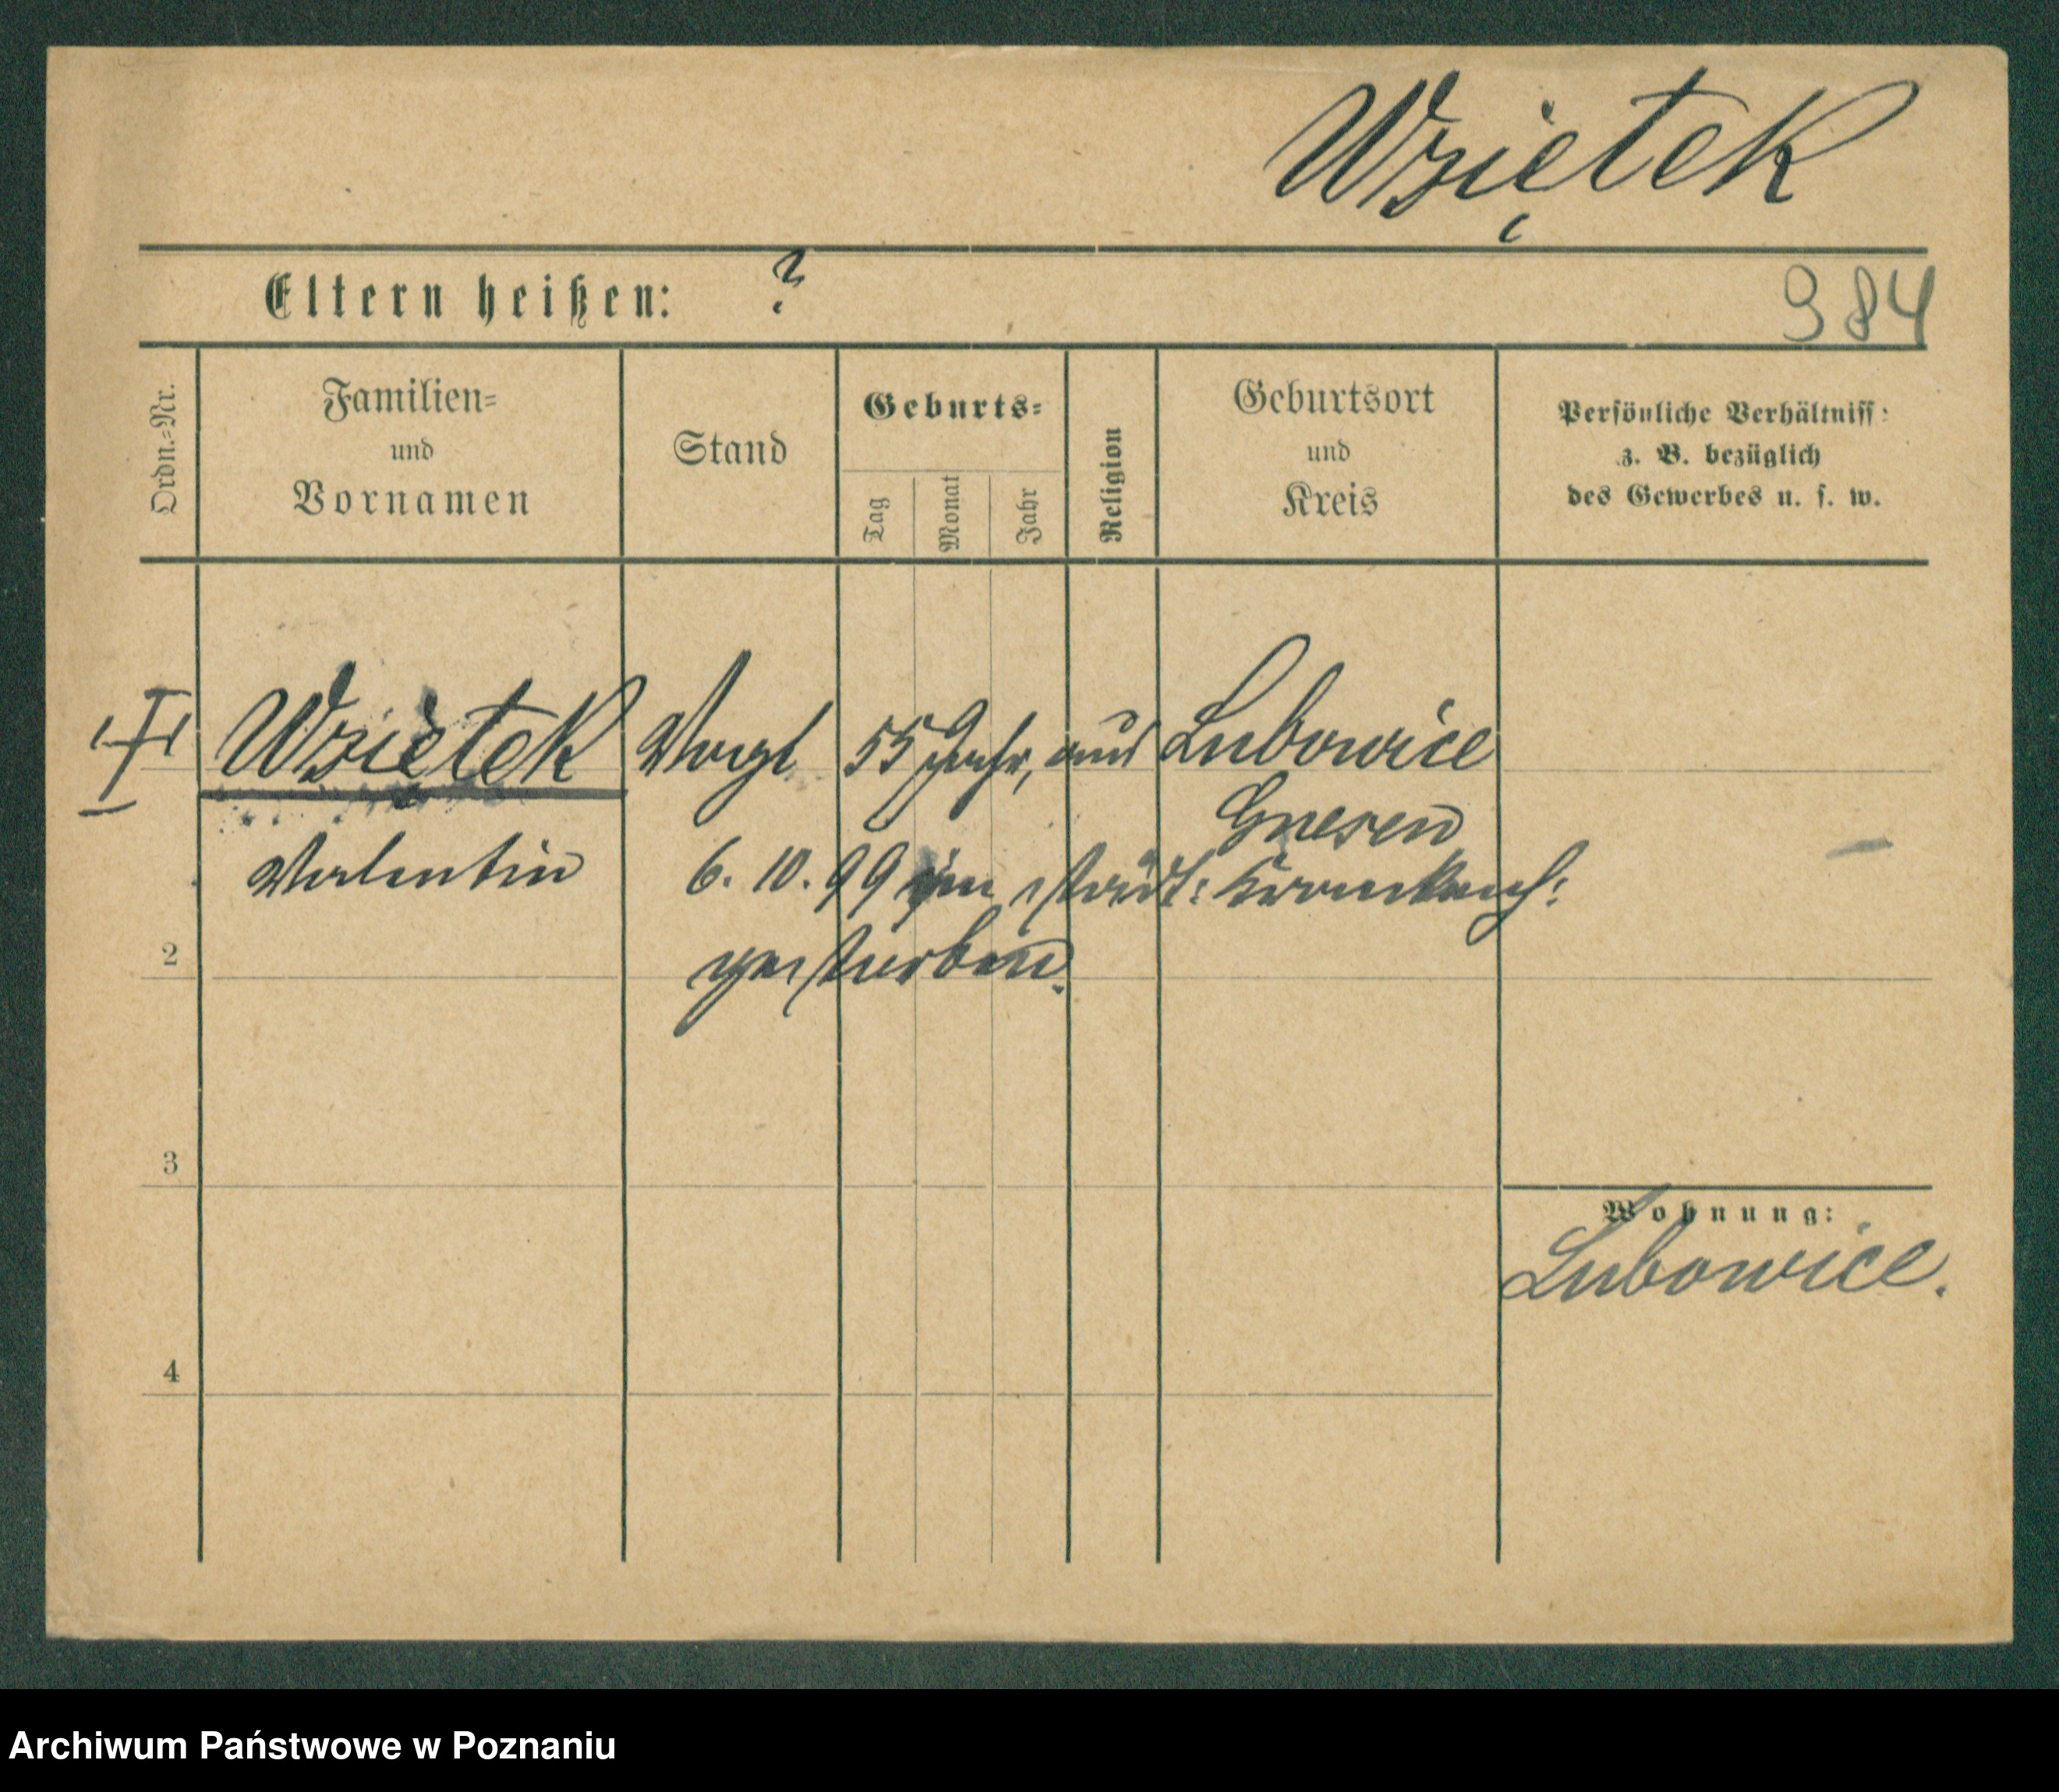 Wziętek
Eltern heißen: ?
984
Ordn.=Nr.
Familien=
und
Vornamen
Stand
Geburts=
Tag
Monat
Jahr
Religion
Geburtsort
und
Kreis
Persönliche Verhältniss:
z. B. bezüglich
des Gewerbes u. s. w.
Wziętek Vogt 55 Jahr, aus Lubowice
Gnesen
Valentin 6. 10. 99 im städt: Krankenh:
2
gestorben.
3
Wohnung:
Lubowice.
4
Archiwum Państwowe w Poznaniu